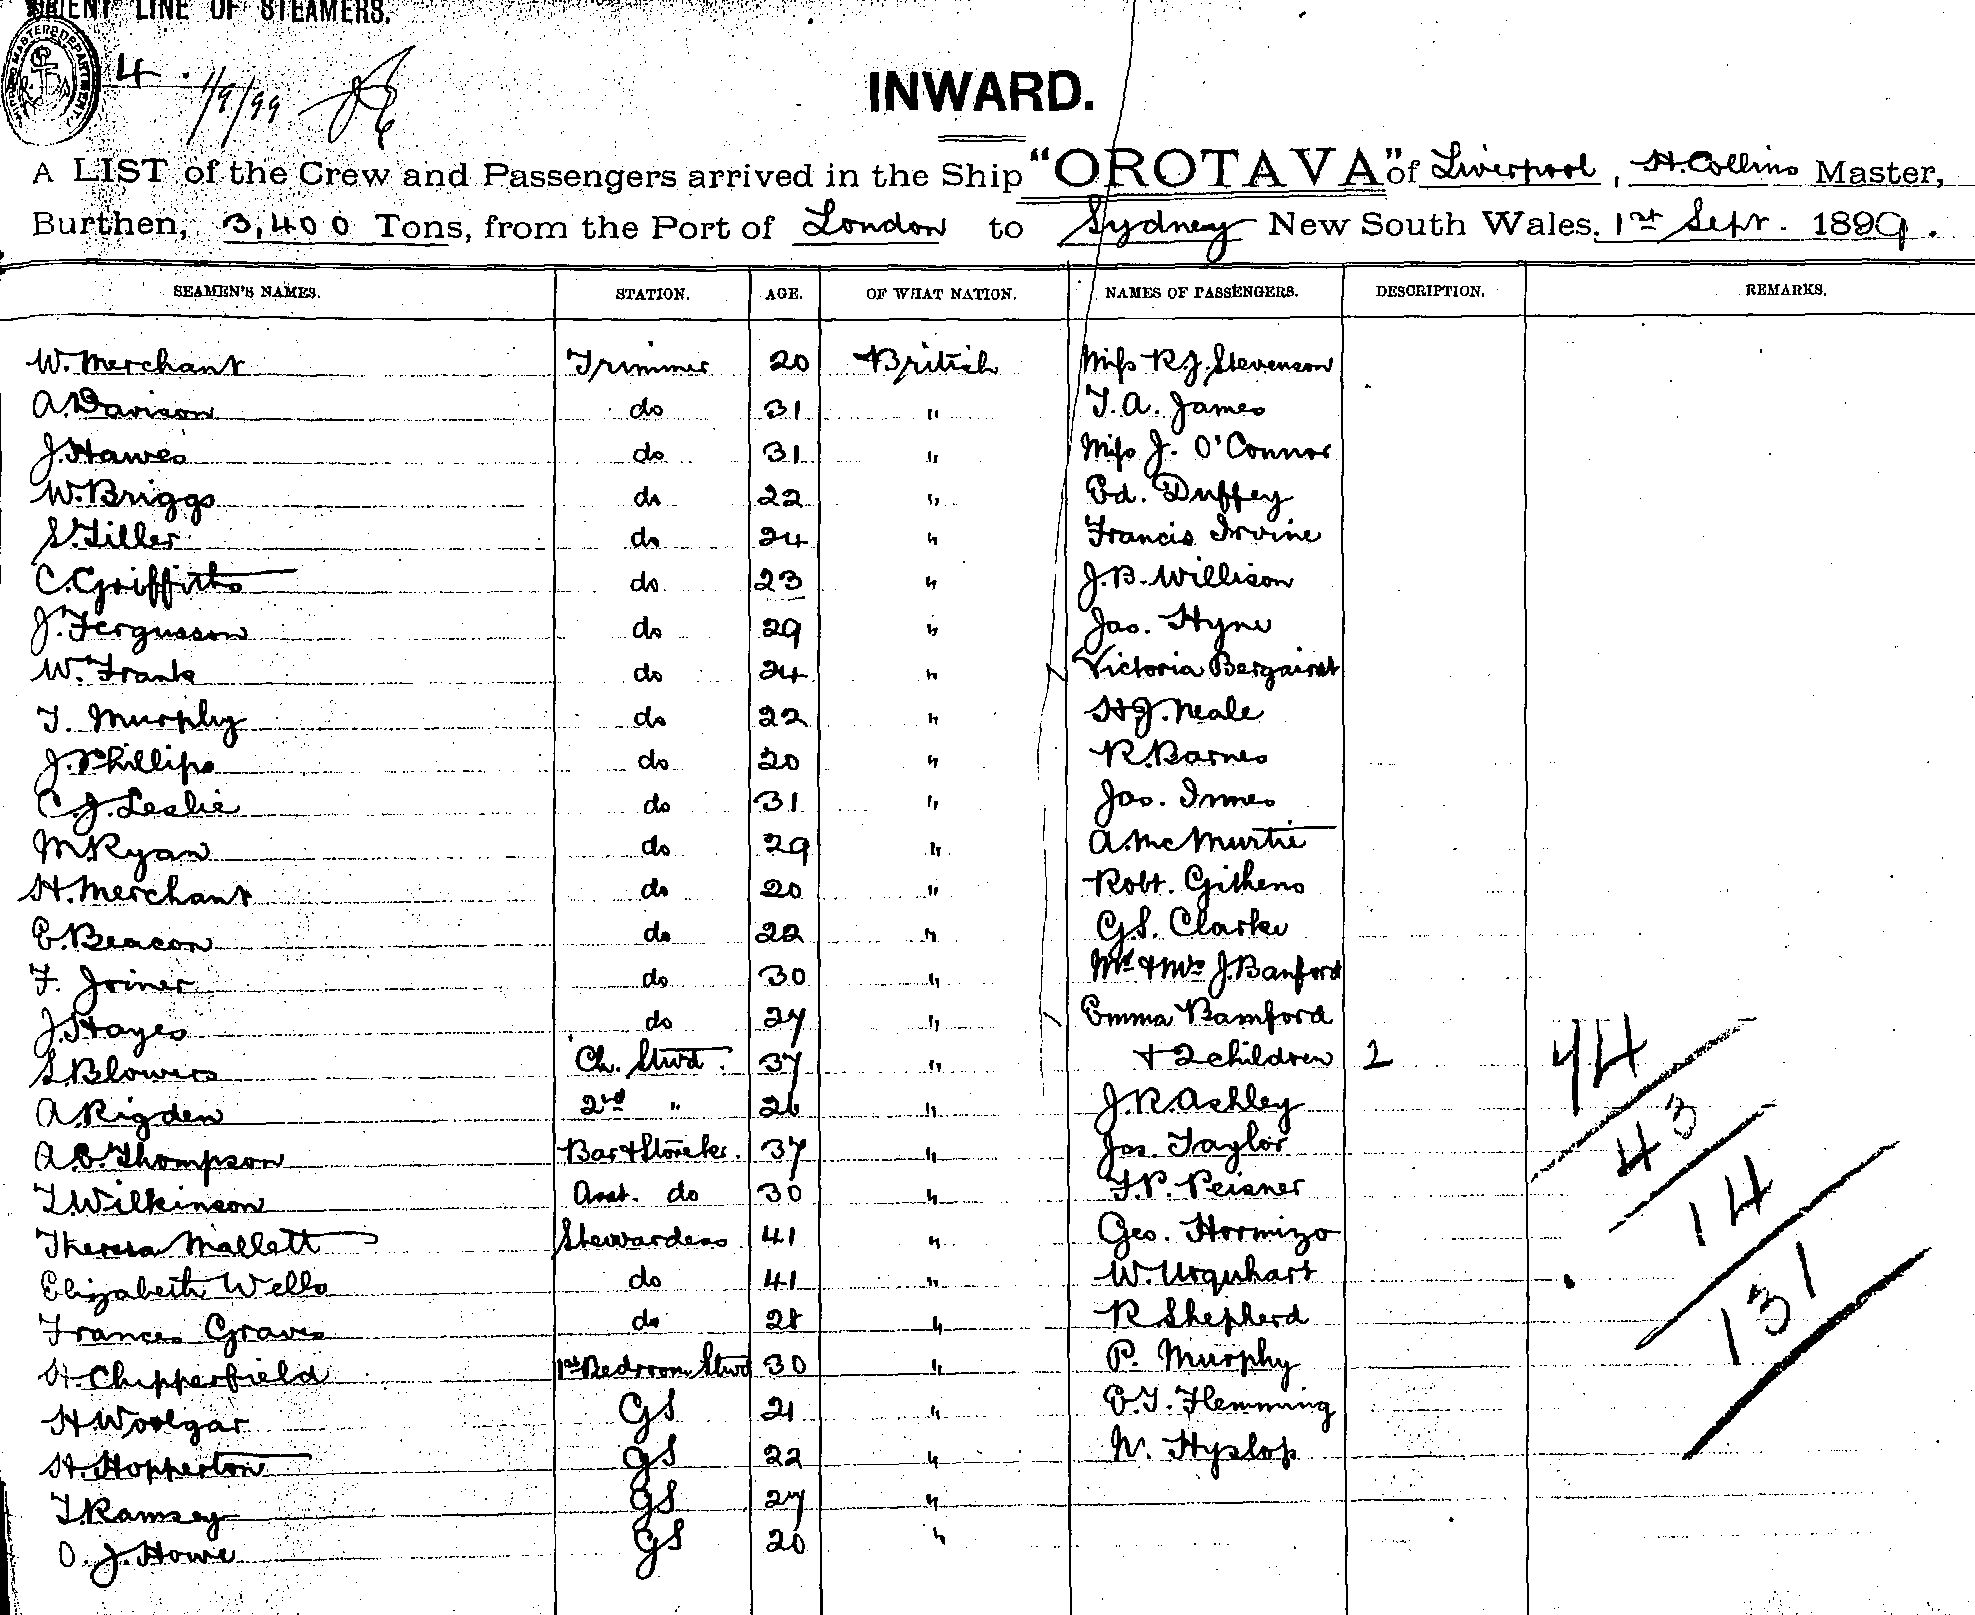 ORIENT LINE OF STEAMERS.
4. 1/9/99
INWARD.
A LIST of the Crew and Passengers arrived in the Ship "OROTAVA" of Liverpool, H. Collins Master,
Burthen, 3,400 Tons, from the Port of London to Sydney New South Wales, 1st Sept. 1899.
SEAMEN'S NAMES. STATION. AGE. OF WHAT NATION. NAMES OF PASSENGERS. DESCRIPTION. REMARKS.
W. Merchant Trimmer 20 British Miss R.J. Stevenson
A. Davison do 31 " T.A. James
J. Hawes do 31 " Miss J. O'Connor
W. Briggs do 22 " Ed. Duffey
S. Tiller do 24 " Francis Irvine
C. Griffiths do 23 " J.B. Willison
J. Fergusson do 29 " Jas. Hyne
W. Frank do 24 " Victoria
T. Murphy do 22 " H.J. Neale
J. Phillips do 20 " R. Barnes
C.J. Leslie do 31 " Jas. Innes
M. Ryan do 29 " A. McMurtie
H. Merchant do 20 " Robt. Githens
E. Beacon do 22 " G.S. Clarke
F. Joiner do 30 " Mr & Mrs J. Banford
J. Hayes do 27 " Emma Bamford
S. Blowers Ch. Stwd. 37 " + 2 children 2 74
A. Rigden 2nd " 26 " J.R. Ashley 43
A.E. Thompson Bar & Storekr. 37 " Jas. Taylor 14
T. Wilkinson Asst. do 30 " F.P. Peisner
Theresa Mallett Stewardess 41 " Geo. Hormizo
Elizabeth Wells do 41 " W. Urquhart 131
Frances Graves do 28 " R Shepherd
H. Chipperfield 1st Bedroom Stwd 30 " P. Murphy
H. Woolgar GS 21 " E.T. Flemming
H. Hopperton GS 22 " W. Hyslop
T. Ramsey GS 27 "
O. J. Howe GS 20 "